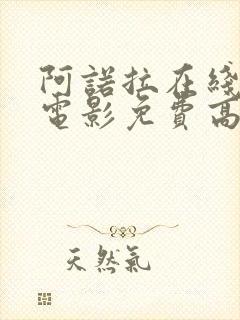 阿諾拉在綫
電影免費高
天然氣